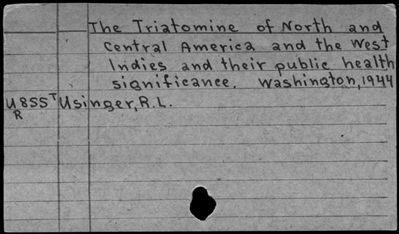 The Triatomine of North and
Central America and the West
Indies and their public health
significance. Washington, 1944
U855T Usinger, R.L.
R